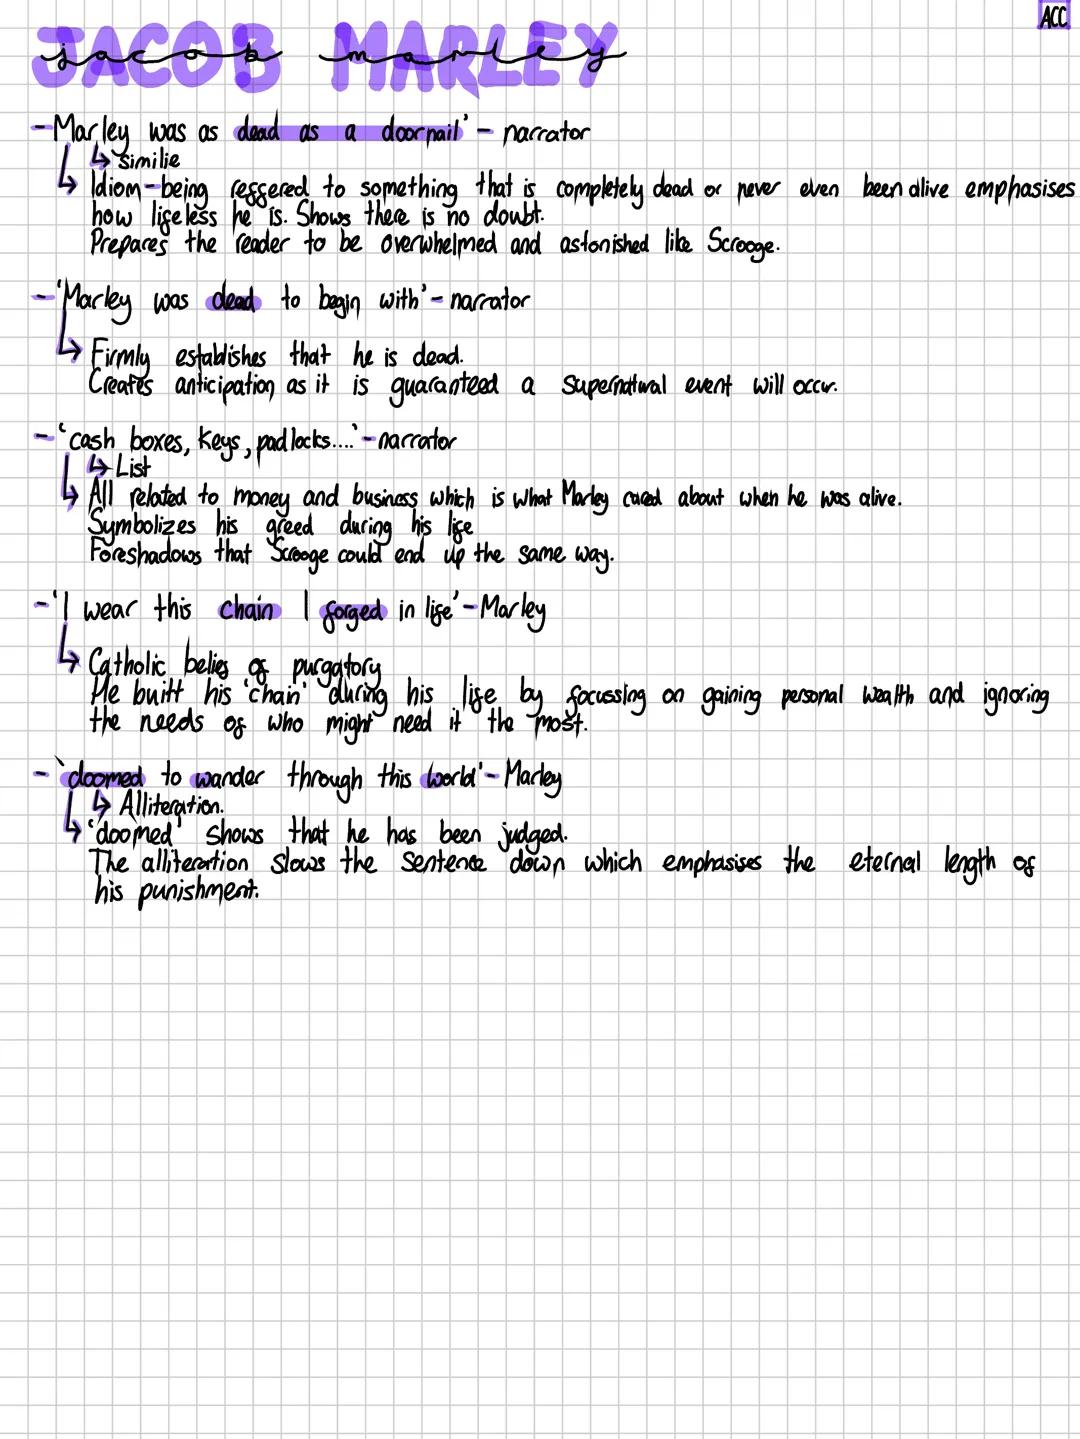 ACC
JACOB MARLEY
jacob marley
- Marley was as dead as a doornail' - narrator
↳ Similie
↳ Idiom - being reffered to something that is completely dead or never even been alive emphasises
how lifeless he is. Shows there is no doubt.
Prepares the reader to be overwhelmed and astonished like Scrooge.
- 'Marley was dead to begin with' - narrator
↳ Firmly establishes that he is dead.
Creates anticipation as it is guaranteed a supernatural event will occur.
- 'cash boxes, keys, padlocks....' - narrator
↳ List
↳ All related to money and business which is what Marley cared about when he was alive.
Symbolizes his greed during his life
Foreshadows that Scrooge could end up the same way.
- 'I wear this chain I forged in life' - Marley
↳ Catholic belief of purgatory
He built his 'chain' during his life by focussing on gaining personal wealth and ignoring
the needs of who might need it the most.
- 'doomed to wander through this world' - Marley
↳ Alliteration.
↳ 'doomed' shows that he has been judged.
The alliteration slows the sentence down which emphasises the eternal length of
his punishment.